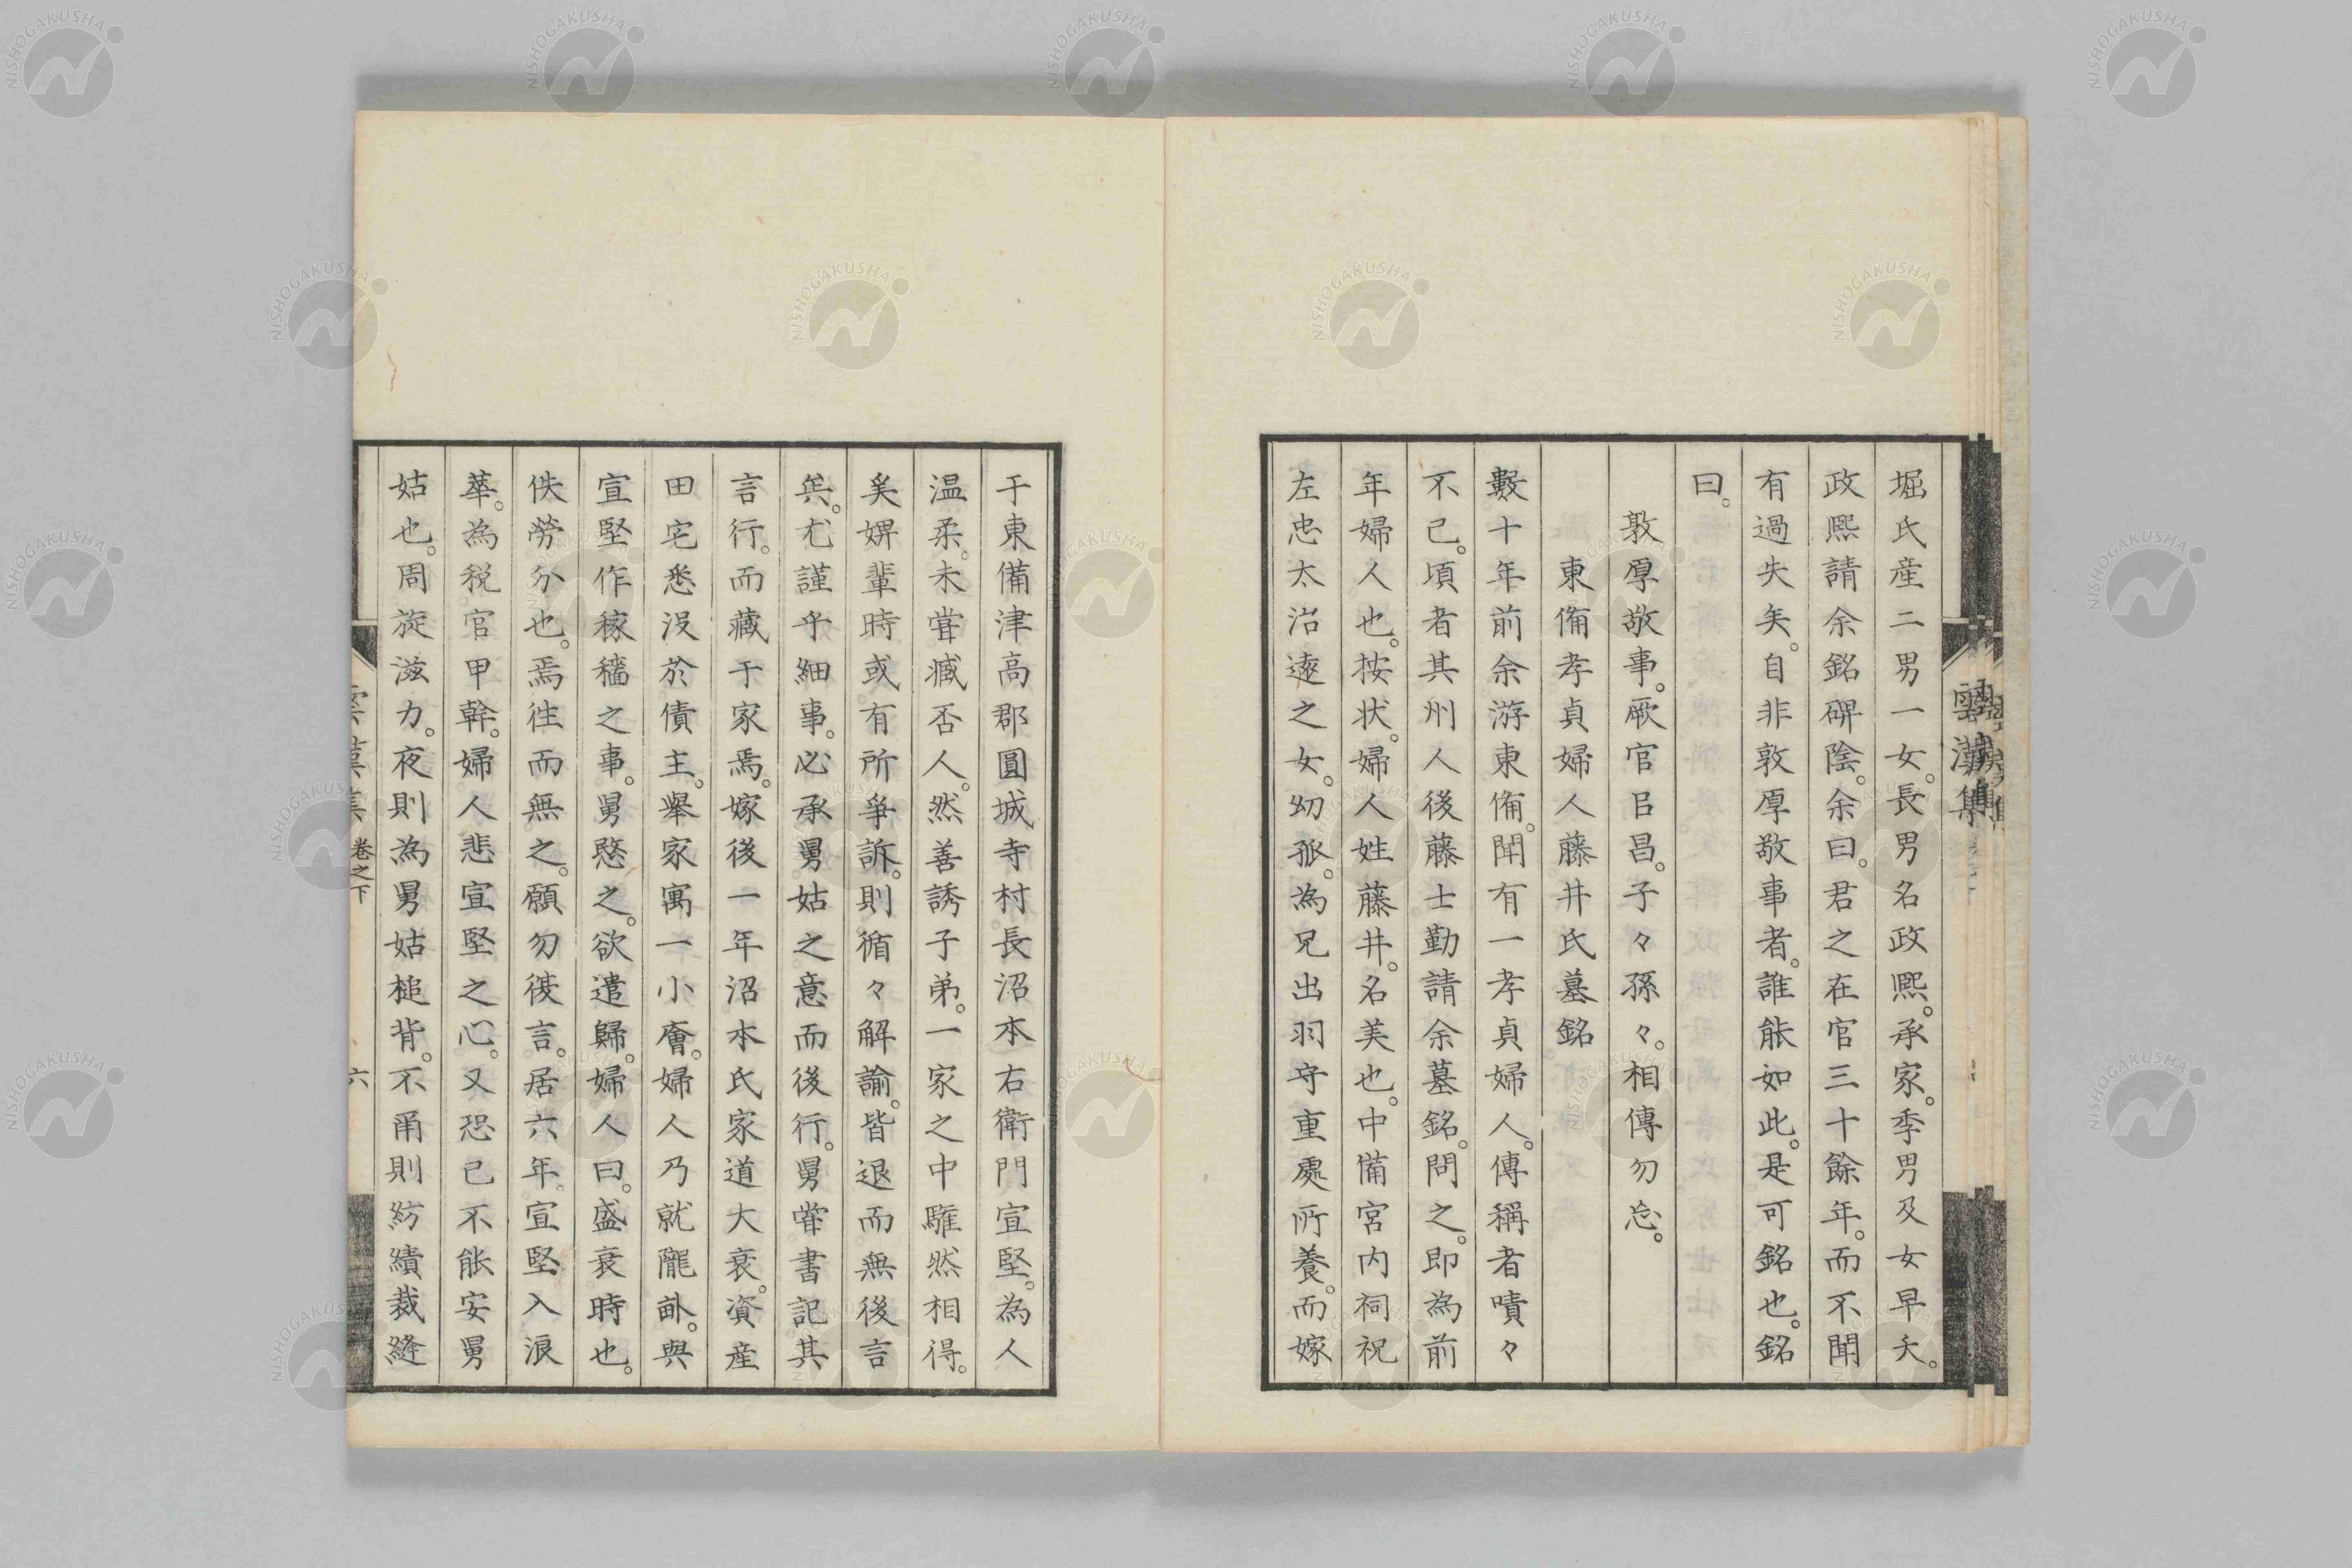 堀氏産二男一女。長男名政熙。承家。季男及女早夭。
政熙請余銘碑陰。余曰。君之在官三十餘年。而不聞
有過失矣。自非敦厚敬事者。誰能如此。是可銘也。銘
曰。
敦厚敬事。厥官㠯昌。子々孫々。相傳勿忘。
東備孝貞婦人藤井氏墓銘
數十年前余游東備。聞有一孝貞婦人。傳稱者嘖々
不已。頃者其州人後藤士勤請余墓銘。問之。即為前
年婦人也。按状。婦人姓藤井。名美也。中備宮内祠祝
左忠太治遠之女。幼孤。為兄出羽守重處所養。而嫁
于東備津高郡圓城寺村長沼本右衛門宣堅。為人
温柔。未甞臧否人。然善誘子弟。一家之中驩然相得。
奚婢輩時或有所爭訴。則循々解諭。皆退而無後言
矣。尤謹乎細事。必承舅姑之意而後行。舅甞書記其
言行。而藏于家焉。嫁後一年沼本氏家道大衰。資産
田宅悉没於債主。舉家寓一小廥。婦人乃就隴畝。與
宣堅作稼穡之事。舅愍之。欲遣歸。婦人曰。盛衰時也。
佚勞分也。焉往而無之。願勿復言。居六年。宣堅入浪
華。為税官甲幹。婦人悲宣堅之心。又恐己不能安舅
姑也。周旋滋力。夜則為舅姑槌背。不甭則紡績裁縫
雲漢集
卷之下
六
NISHOGAKUSHA